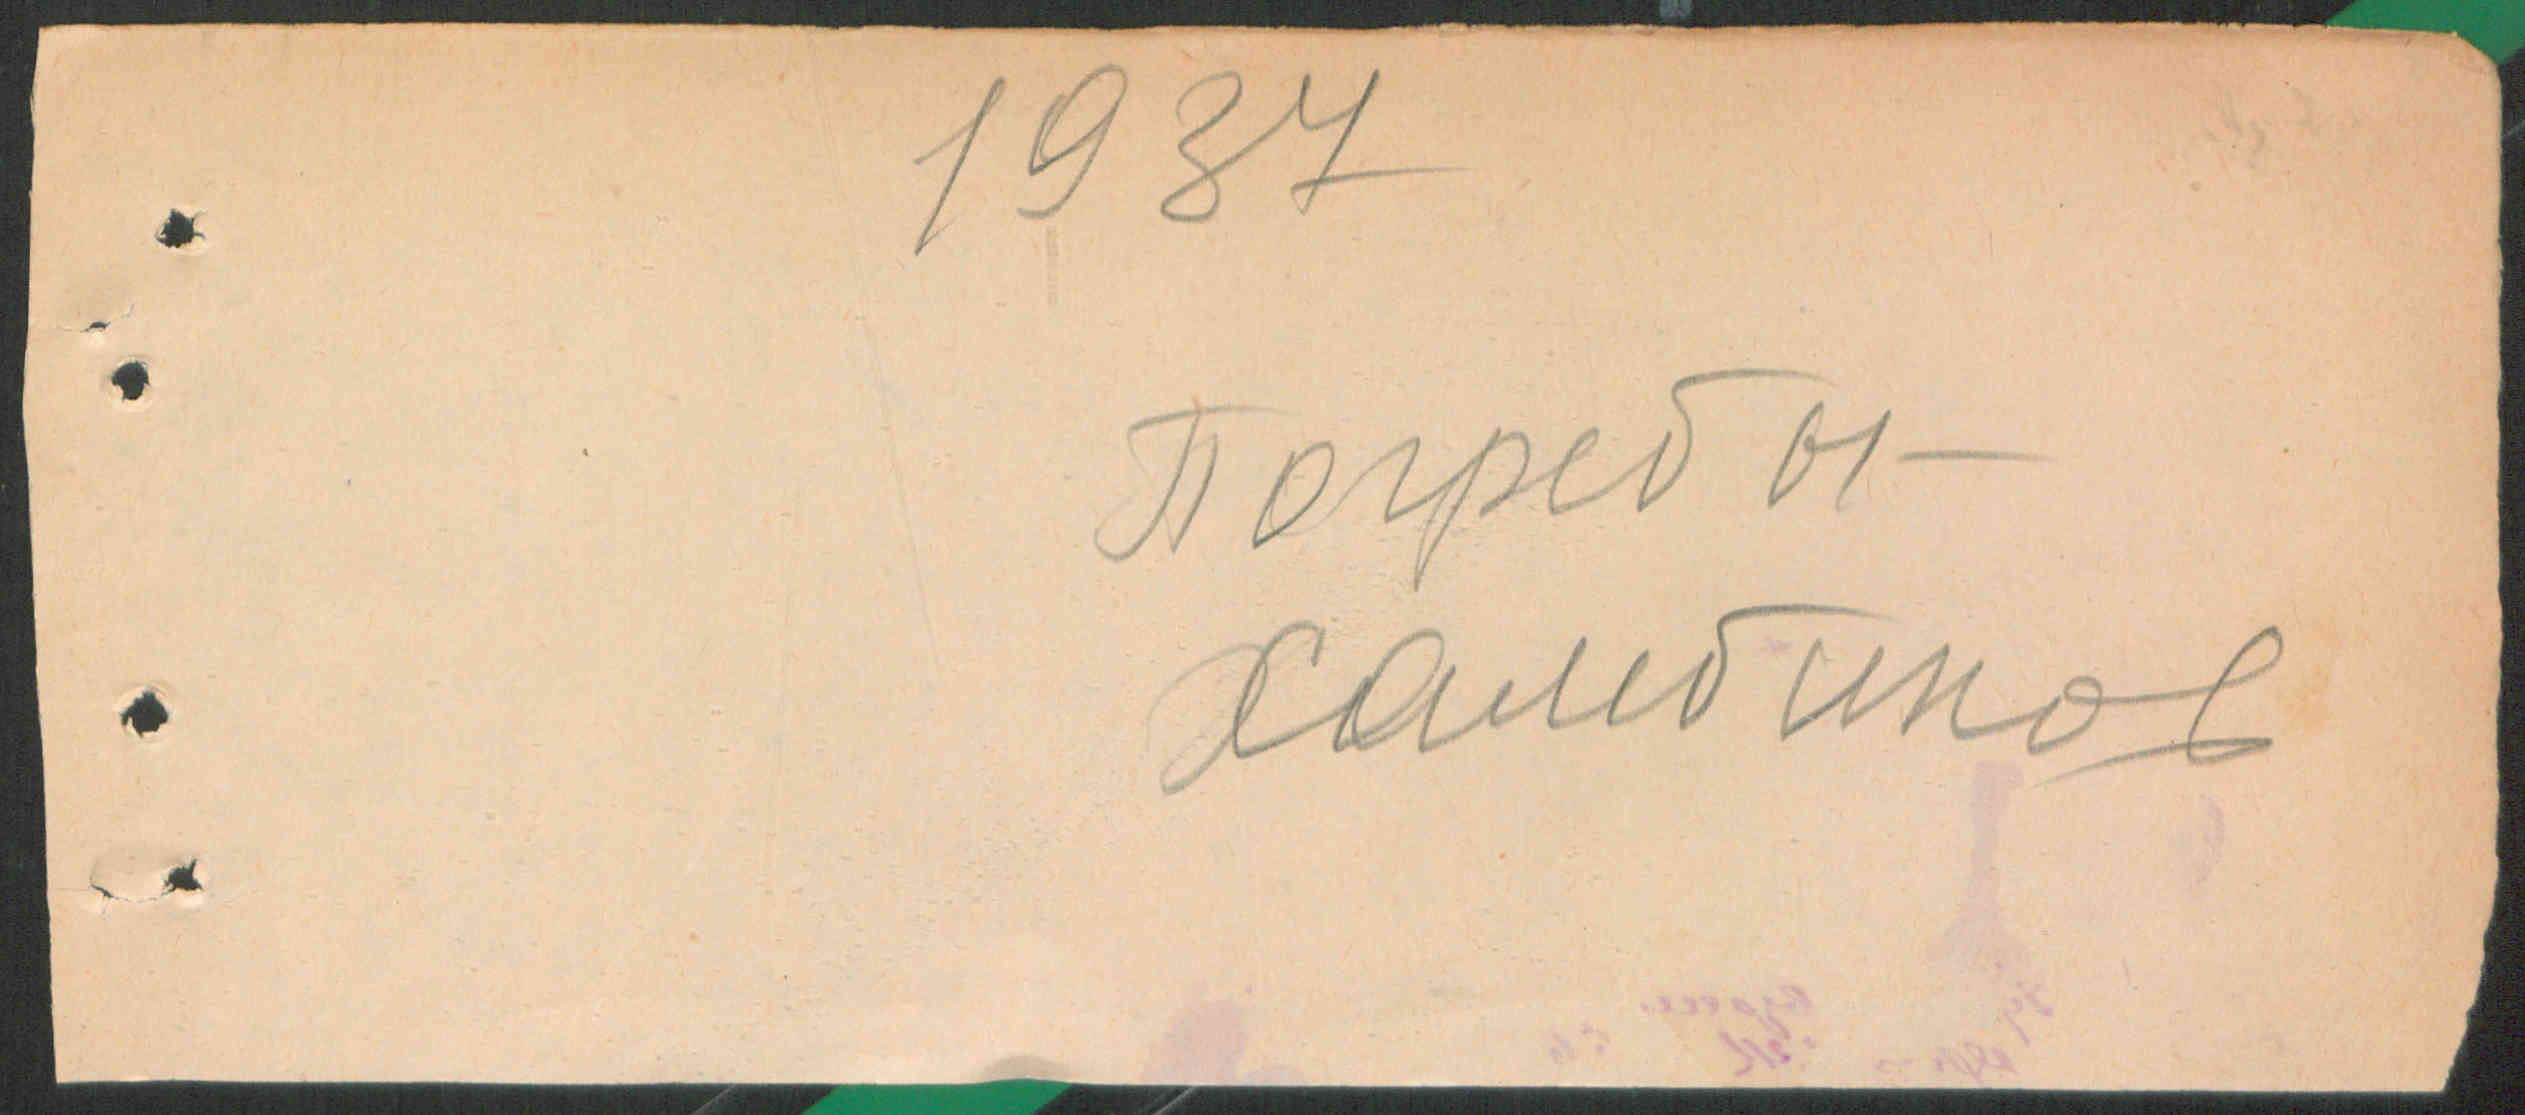 1937
Погребы —
Халебинов